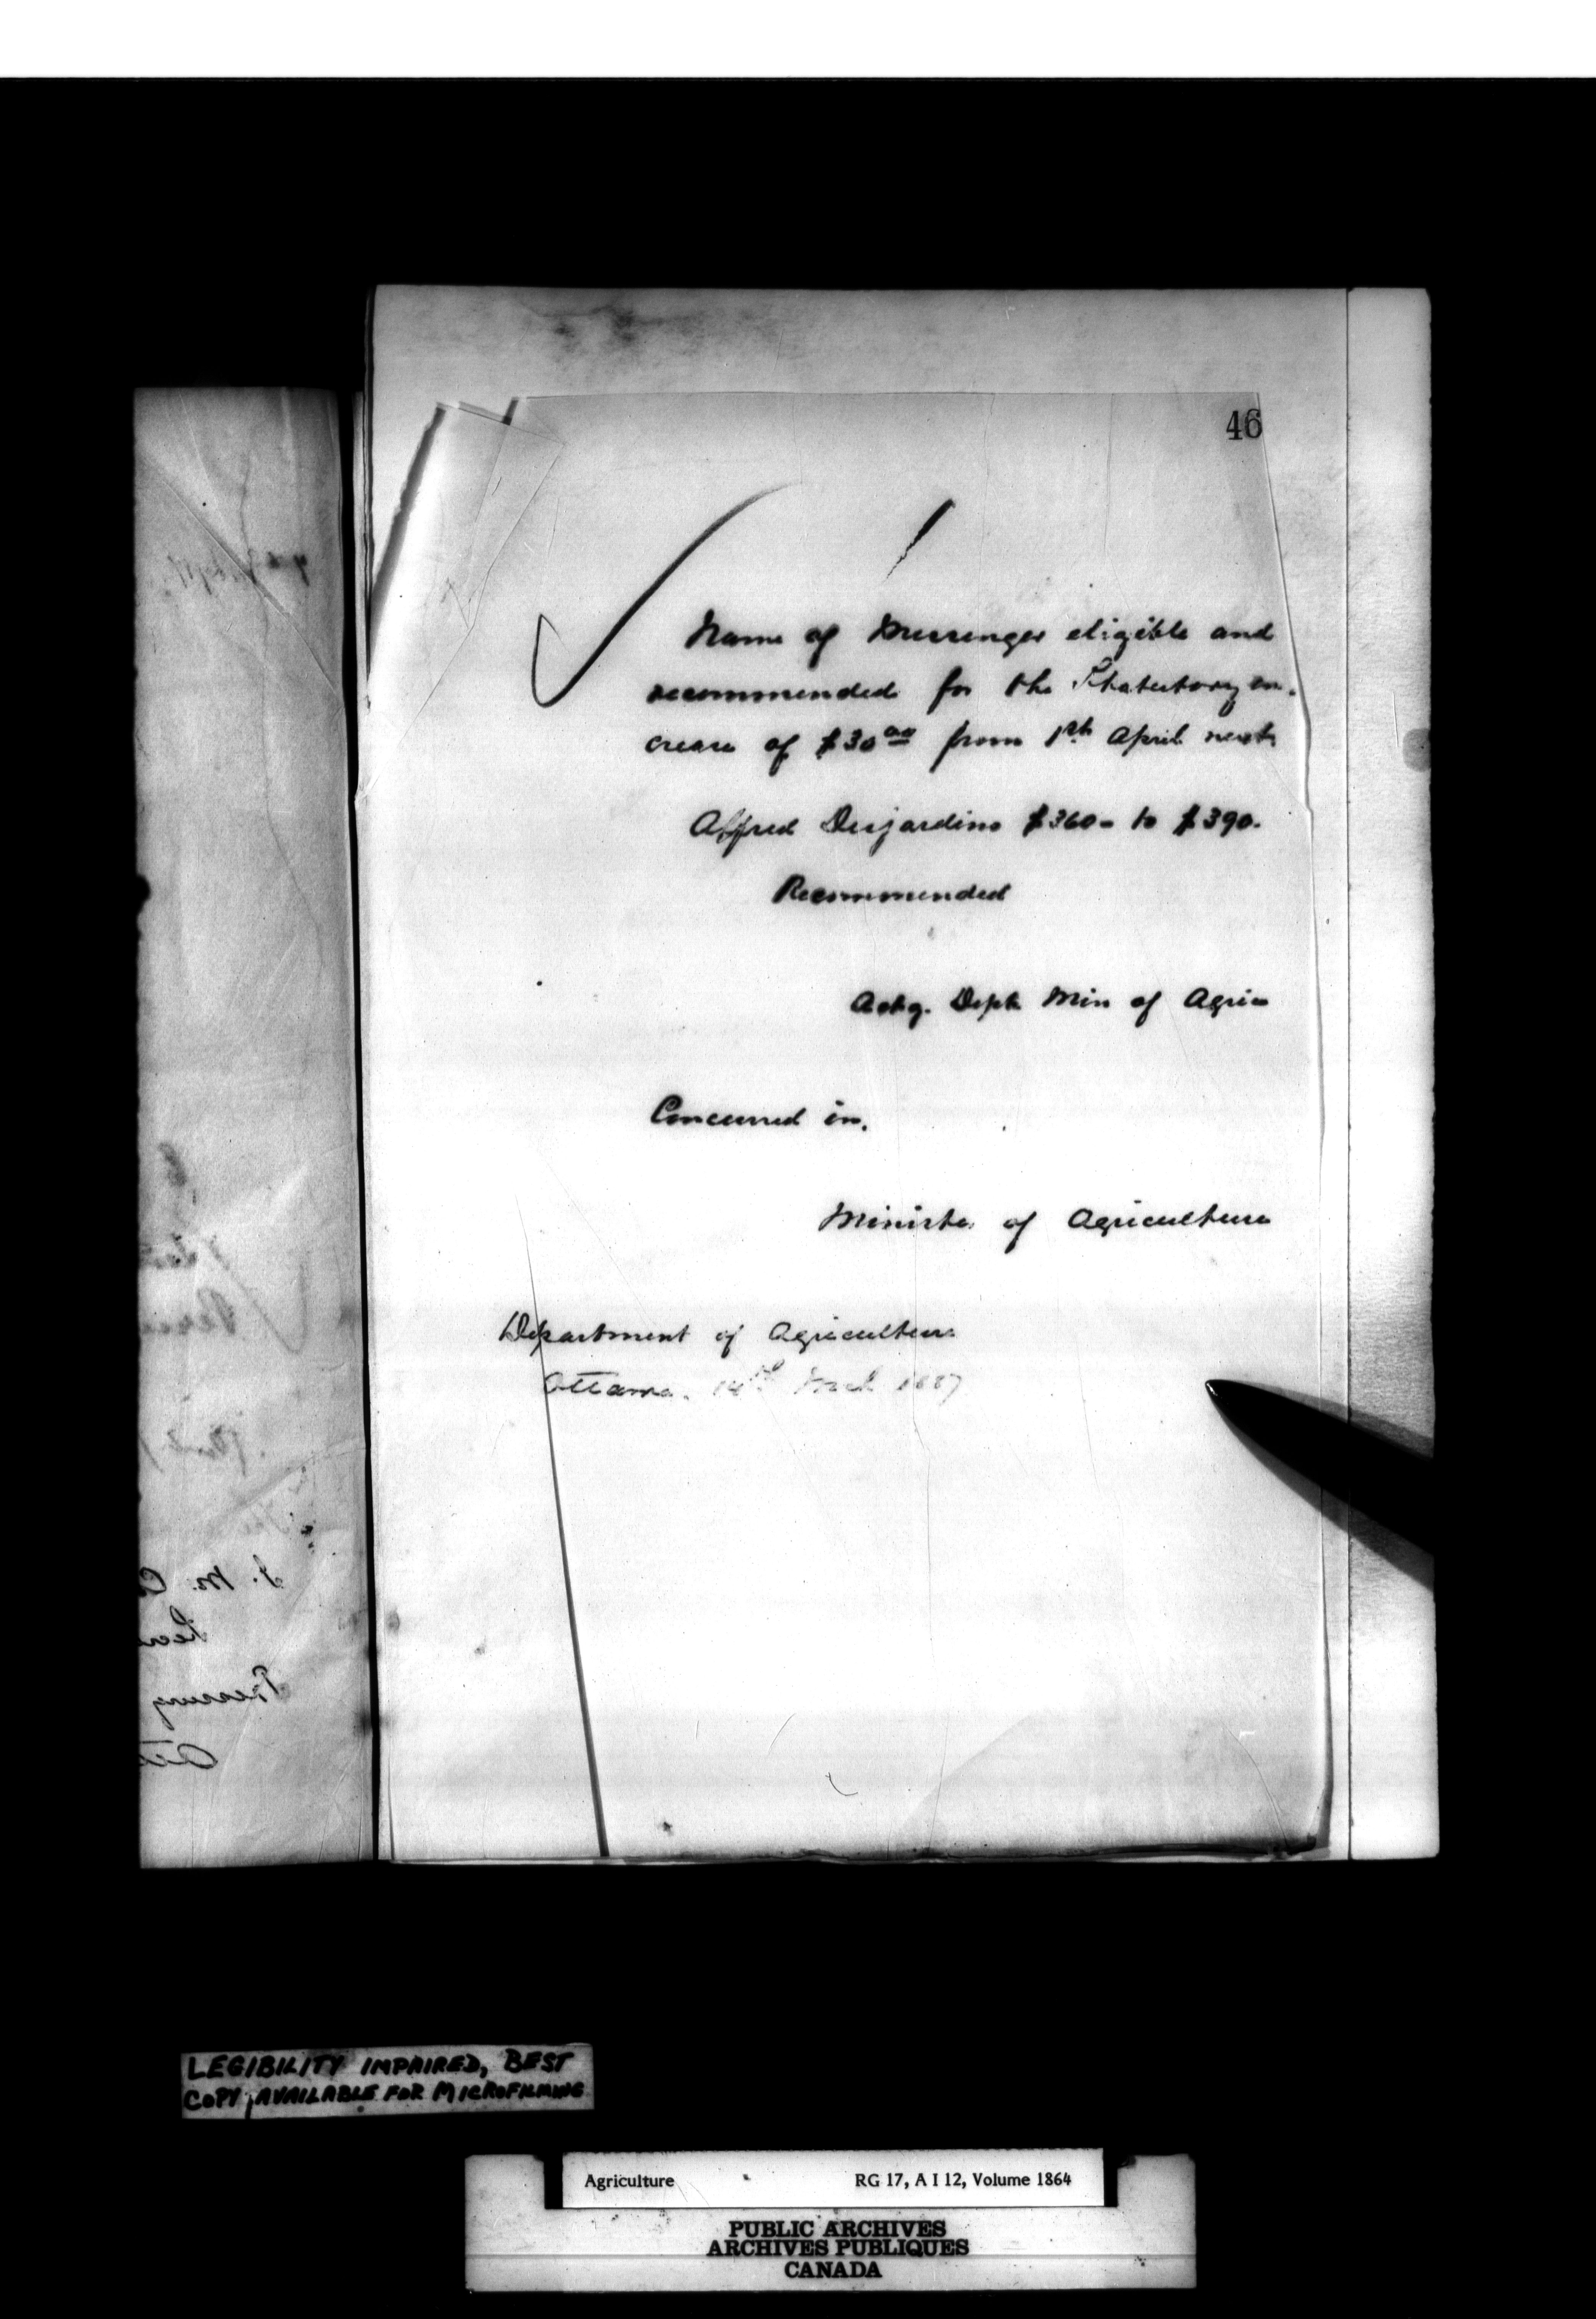 46
Name of Messenger eligible and
recommended for the Statutory in-
crease of $30.00 from 1st April next.
Alfred Desjardins $360- to $390.
Recommended
Actg. Dept Min of Agric
Concurred in.
Minister of Agriculture
Department of Agriculture
Ottawa. 14th March 1887
J. M. C
Treasury
LEGIBILITY IMPAIRED, BEST
COPY AVAILABLE FOR MICROFILMING
Agriculture RG 17, A I 12, Volume 1864
PUBLIC ARCHIVES
ARCHIVES PUBLIQUES
CANADA